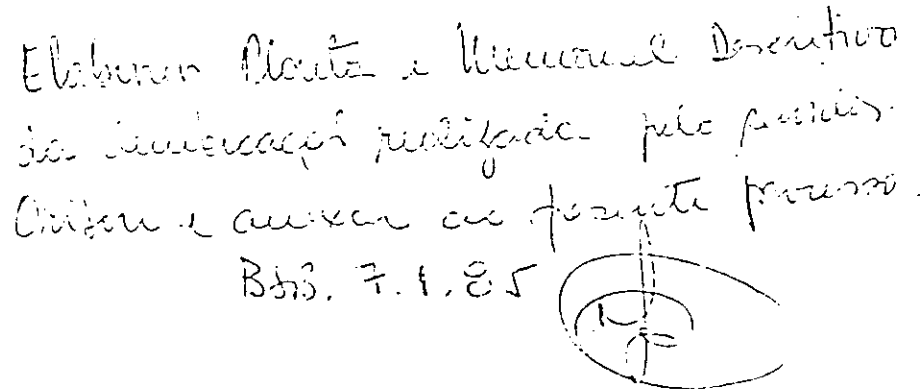 Elaborar Planta e Memorial Descritivo
da demarcação realizada pela
e anexar ao presente processo.
BSB. 7.1.85